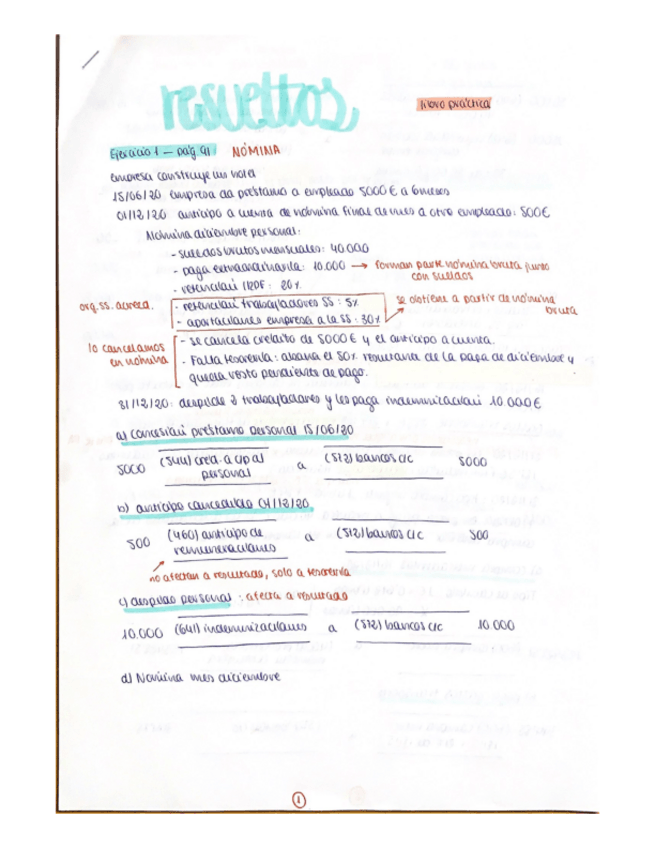 resueltos
libro práctica
Ejercicio 1 - pág. 91 NÓMINA
empresa construye un hotel
15/06/20 empresa da préstamo a empleado 5000 € a 6 meses
01/12/20 anticipo a cuenta de nómina final de mes a otro empleado: 500€
Nómina diciembre personal:
- sueldos brutos mensuales: 40.000
- paga extraordinaria: 10.000 → forman parte nómina bruta junto
con sueldos
- retención IRPF: 20%
org. ss. acreed.
- retención trabajadores SS: 5%
- aportaciones empresa a la SS: 30%
se obtiene a partir de nómina
bruta
lo cancelamos
en nómina
- se cancela crédito de 5000 € y el anticipo a cuenta.
- Falta tesorería: abona el 50% resultante de la paga de diciembre y
queda resto pendiente de pago.
31/12/20: despide 2 trabajadores y les paga indemnización 10.000€
a) concesión préstamo personal 15/06/20
5000 (544) créd. a c/p al
personal
a (572) bancos c/c 5000
b) anticipo concedido 01/12/20
500 (460) anticipo de
remuneraciones
a (572) bancos c/c 500
no afectan a resultado, solo a tesorería
c) despido personal: afecta a resultado
10.000 (641) indemnizaciones a (572) bancos c/c 10.000
d) Nómina mes diciembre
1